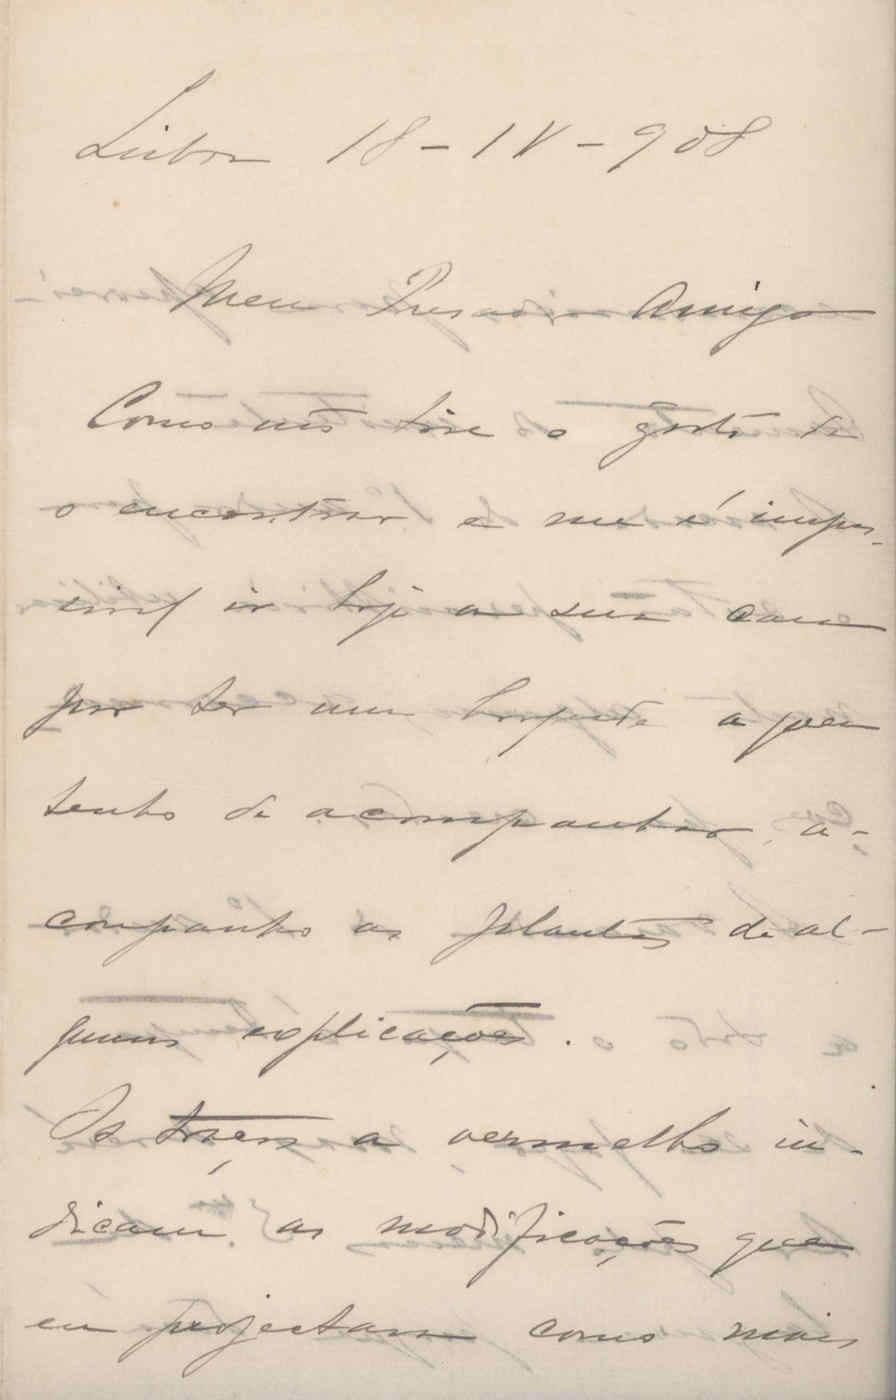 Lisboa 18-IV-908
Meu Presado Amigo
Como não tive o gosto de
o encontrar e me é impos-
sivel ir hoje a sua casa
por ter um hospede a quem
tenho de acompanhar, a-
companho as plantas de al-
gumas explicações.
Os traços a vermelho in-
dicam as modificações que
eu projectava como mais